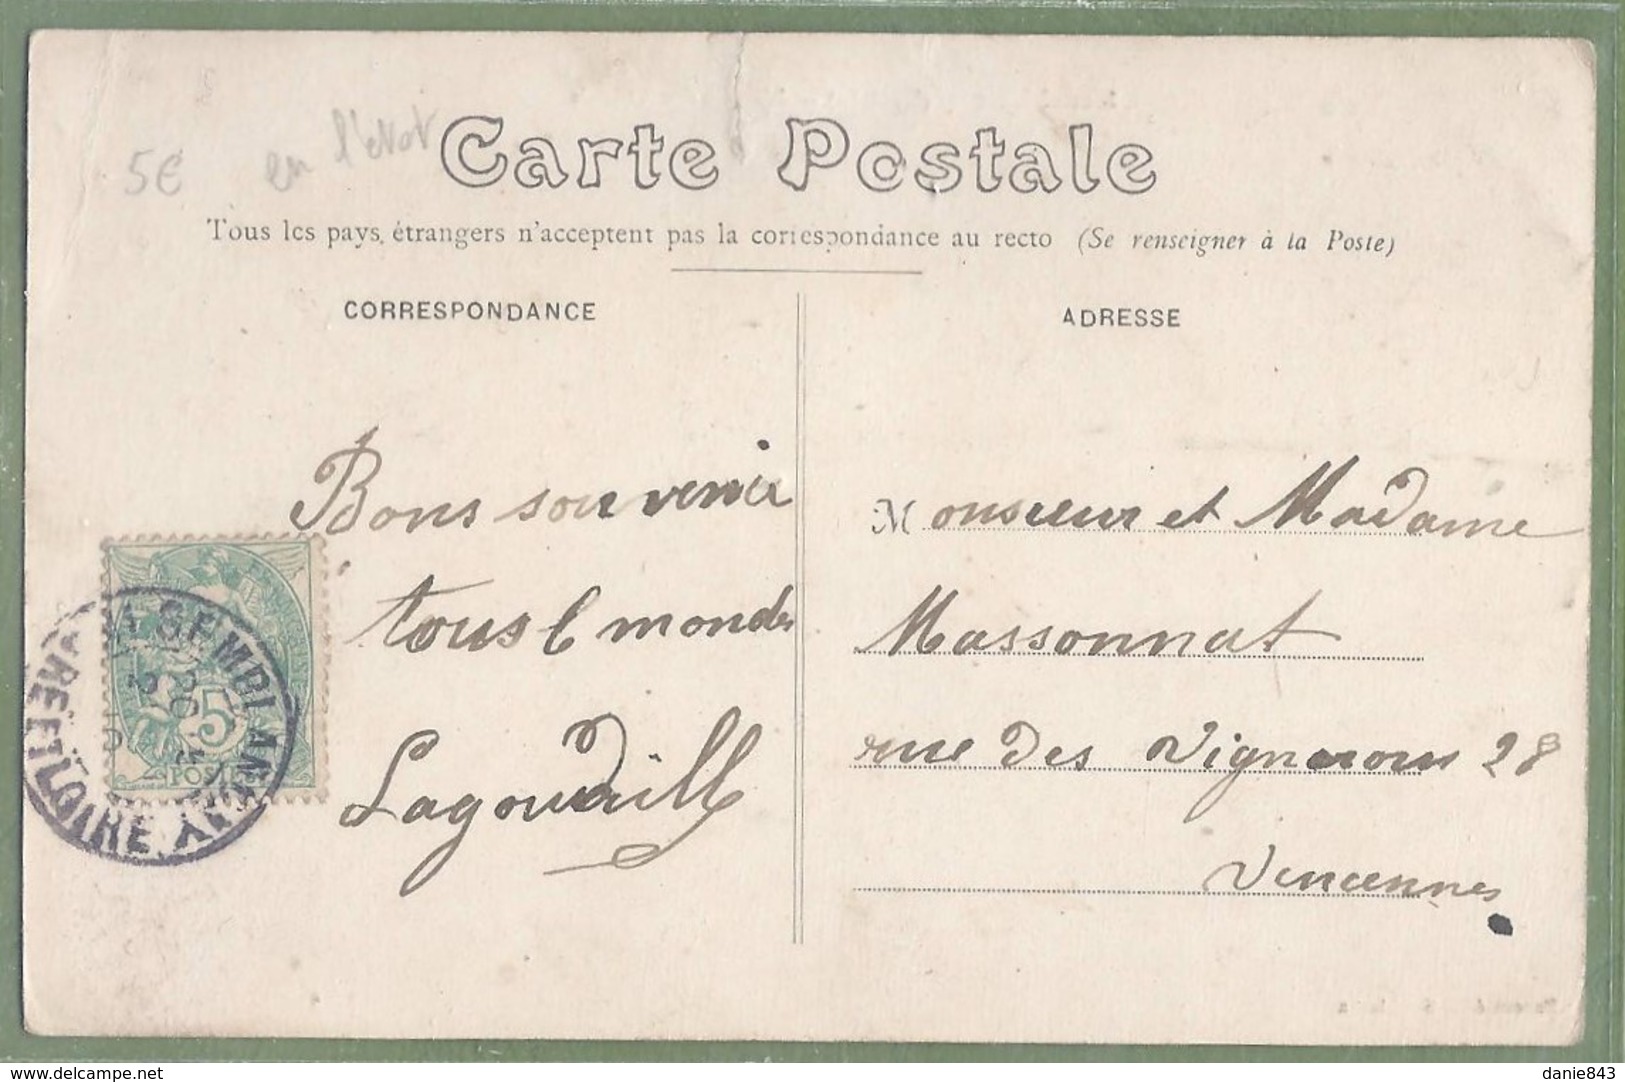 5€ en l'etat
Carte Postale
Tous les pays étrangers n'acceptent pas la correspondance au recto (Se renseigner à la Poste)
CORRESPONDANCE
ADRESSE
Bons souvenir
tous l monde
Lagoudaill
Monsieur et Madame
Massonnat
rue des Vignerons 28
Vincennes
5
POSTE
INDRE ET LOIRE
www.delcampe.net
danie843